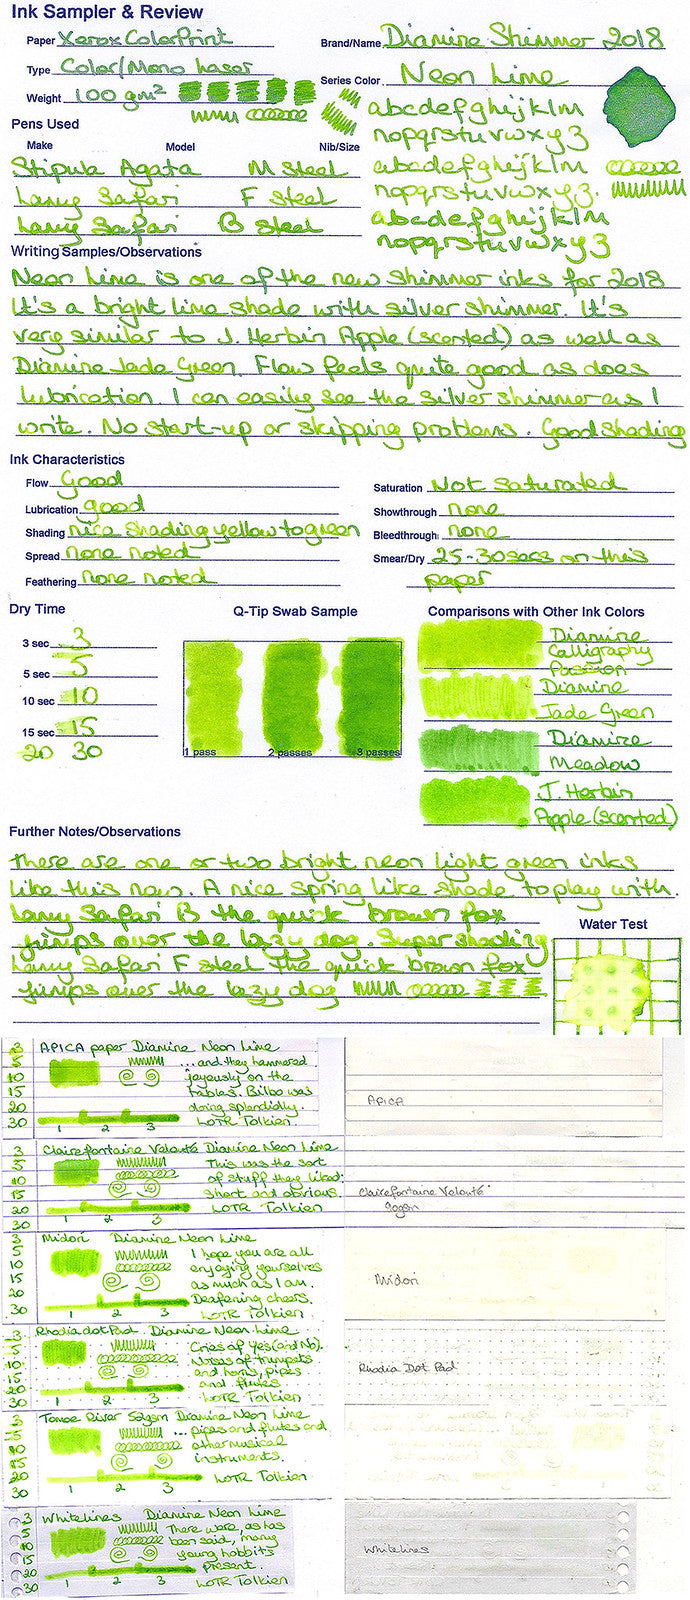 Ink Sampler & Review
Paper Xerox ColorPrint
Brand/Name Diamine Shimmer 2018
Type Color/Mono Laser
Series Color Neon Lime
Weight 100 gm²
abcdefghijklm
nopqrstuvwxyz
abcdefghijklm
nopqrstuvwxyz
abcdefghijklm
nopqrstuvwxyz
Pens Used
Make Model Nib/Size
Stipula Agata M Steel
Lamy Safari F Steel
Lamy Safari B Steel
Writing Samples/Observations
Neon Lime is one of the new shimmer inks for 2018
It's a bright lime shade with silver shimmer. It's
very similar to J. Herbin Apple (scented) as well as
Diamine Jade Green. Flow feels quite good as does
lubrication. I can easily see the silver shimmer as I
write. No start-up or skipping problems. Good shading
Ink Characteristics
Flow Good
Lubrication good
Shading nice shading yellow to green
Spread none noted
Feathering none noted
Saturation Not Saturated
Showthrough none
Bleedthrough none
Smear/Dry 25-30secs on this
paper
Dry Time
3 sec 3
5 sec 5
10 sec 10
15 sec 15
20 30
Q-Tip Swab Sample
1 pass 2 passes 3 passes
Comparisons with Other Ink Colors
Diamine
Calligraphy
Passion
Diamine
Jade Green
Diamine
Meadow
J. Herbin
Apple (scented)
Further Notes/Observations
There are one or two bright neon light green inks
like this now. A nice spring like shade to play with.
Lamy Safari B the quick brown fox
jumps over the lazy dog. Super shading
Lamy Safari F steel the quick brown fox
jumps over the lazy dog
Water Test
3
5
10
15
20
30
APICA paper Diamine Neon Lime
...and they hammered
joyously on the
tables. Bilbo was
doing splendidly.
LOTR Tolkien
1 2 3
APICA
3
5
10
15
20
30
Clairefontaine Velouté Diamine Neon Lime
This was the sort
of stuff they liked:
short and obvious.
LOTR Tolkien
1 2 3
Clairefontaine Velouté
90gsm
3
5
10
15
20
30
Midori Diamine Neon Lime
I hope you are all
enjoying yourselves
as much as I am.
Deafening cheers.
LOTR Tolkien
1 2 3
Midori
3
5
10
15
20
30
Rhodia dot Pad Diamine Neon Lime
Cries of Yes (and No).
Noises of trumpets
and horns, pipes
and flutes
LOTR Tolkien
1 2 3
Rhodia Dot Pad
3
5
10
15
20
30
Tomoe River 52gsm Diamine Neon Lime
... pipes and flutes and
other musical
instruments.
LOTR Tolkien
1 2 3
3
5
10
15
20
30
Whitelines Diamine Neon Lime
There were, as has
been said, many
young hobbits
present.
LOTR Tolkien
1 2 3
Whitelines